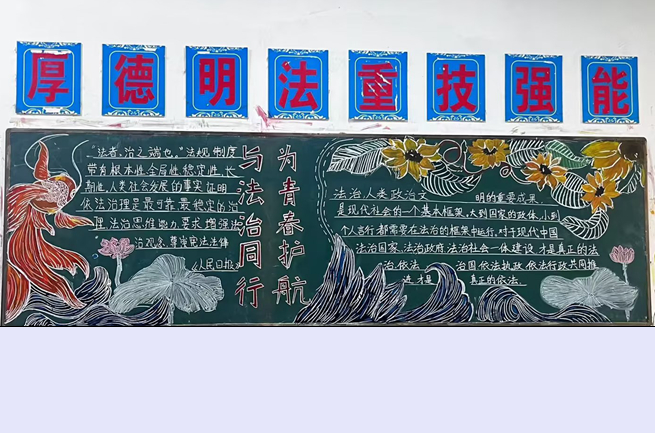 厚德明法重技强能
"法者、治之端也。"法规制度
带有根本性、全局性、稳定性、长
期性。人类社会发展的事实证明
依法治理是最可靠、最稳定的治
理。法治思维能力要求增强法
治观念、尊崇宪法法律
《人民日报》
与法治同行
为青春护航
法治人类政治文 明的重要成果、
是现代社会的一个基本框架。大到国家的政体、小到
个人言行、都需要在法治的框架中运行、对于现代中国
法治国家、法治政府、法治社会一体建设、才是真正的法
治、依法 治国、依法执政、依法行政共同推
进、才是 真正的依法、